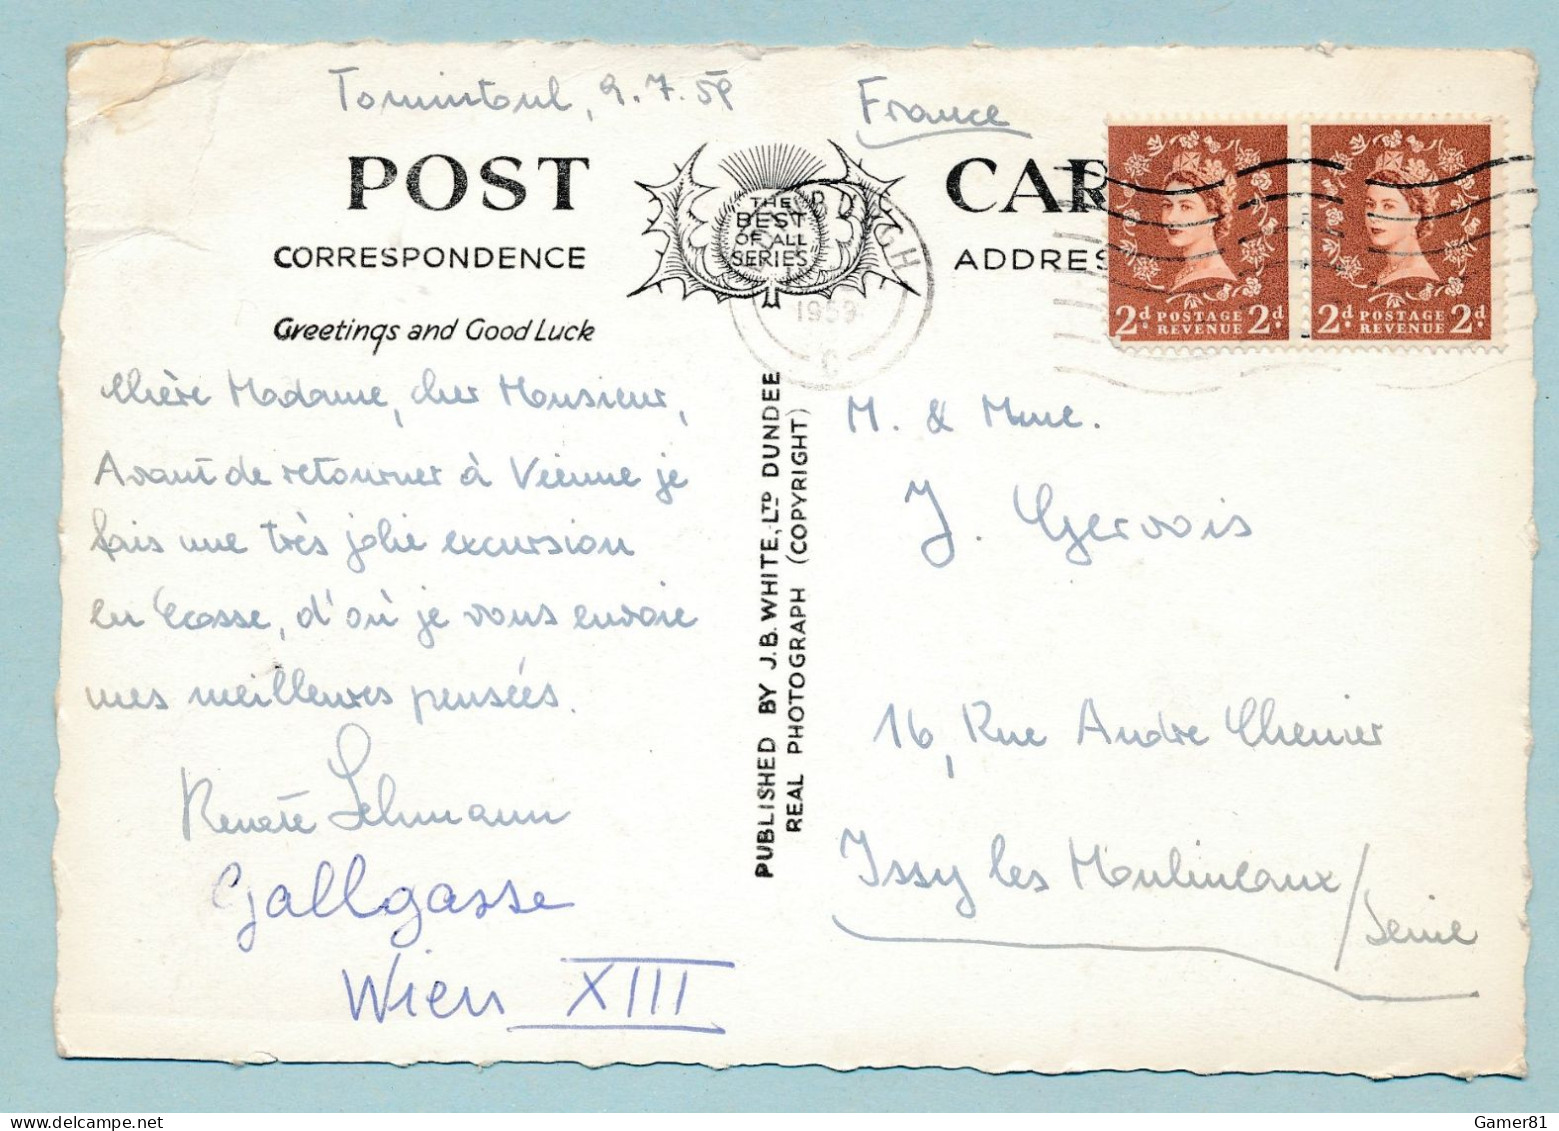 Tomintoul, 9.7.59
France
POST
CARD
THE
BEST
OF ALL
SERIES
CORRESPONDENCE
ADDRES
Greetings and Good Luck
1959
C
2d POSTAGE REVENUE 2d
2d POSTAGE REVENUE 2d
Chère Madame, cher Monsieur,
Avant de retourner à Vienne je
fais une très jolie excursion
en Ecosse, d'où je vous envoie
mes meilleures pensées.
Renate Lehmann
Gallgasse
Wien XIII
PUBLISHED BY J.B. WHITE, LTD DUNDEE
REAL PHOTOGRAPH (COPYRIGHT)
M. & Mme.
J. Gervois
16, Rue Andre Chenier
Issy les Moulineaux / Seine
Gamer81